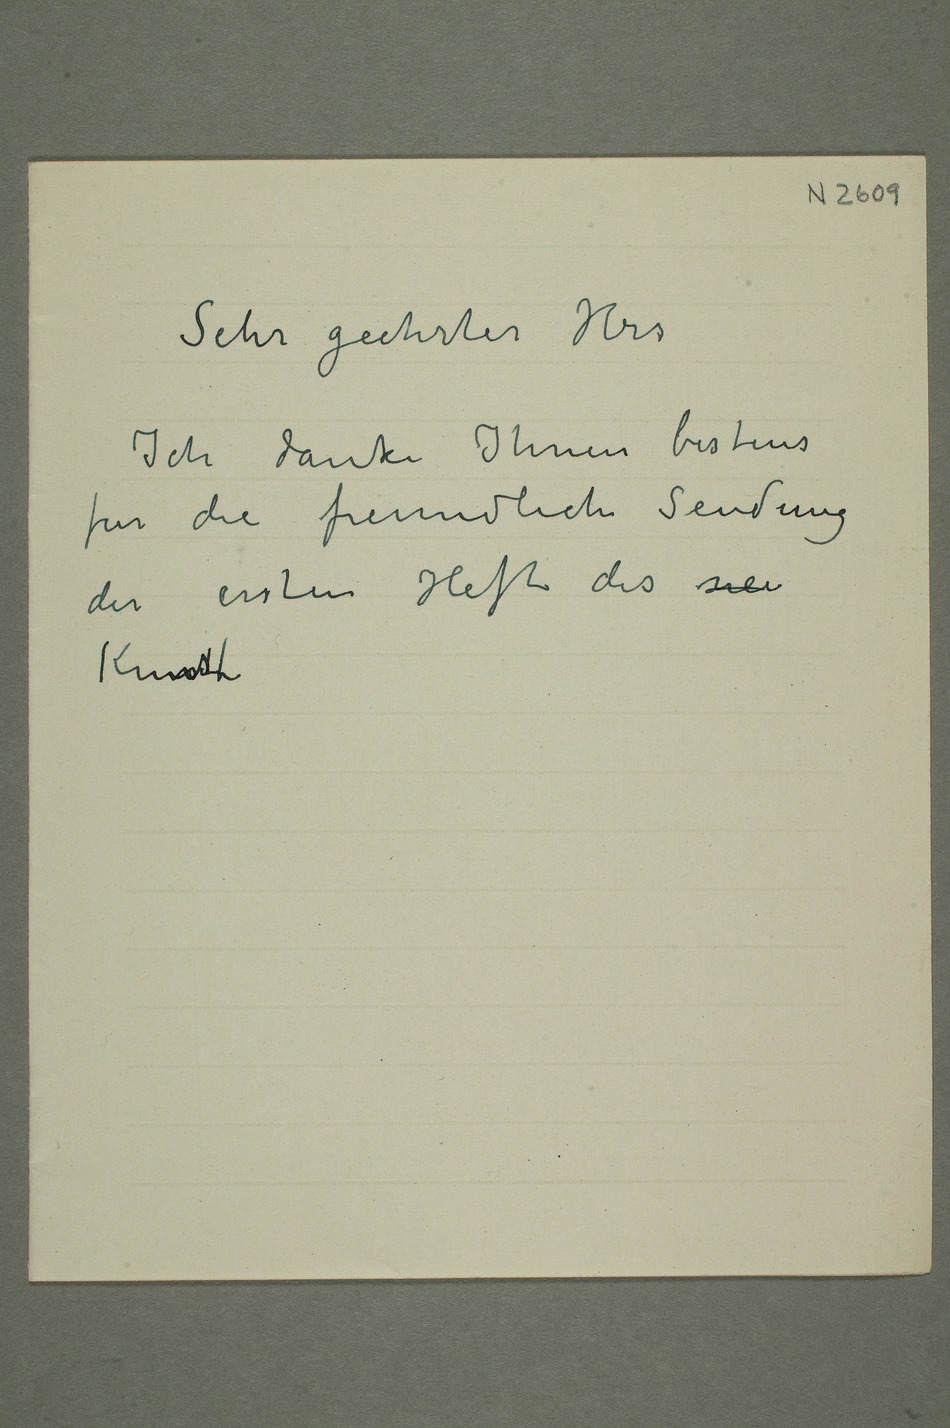 N 2609
Sehr geehrter Herr
Ich danke Ihnen bestens
für die freundliche Sendung
der ersten Hefte des